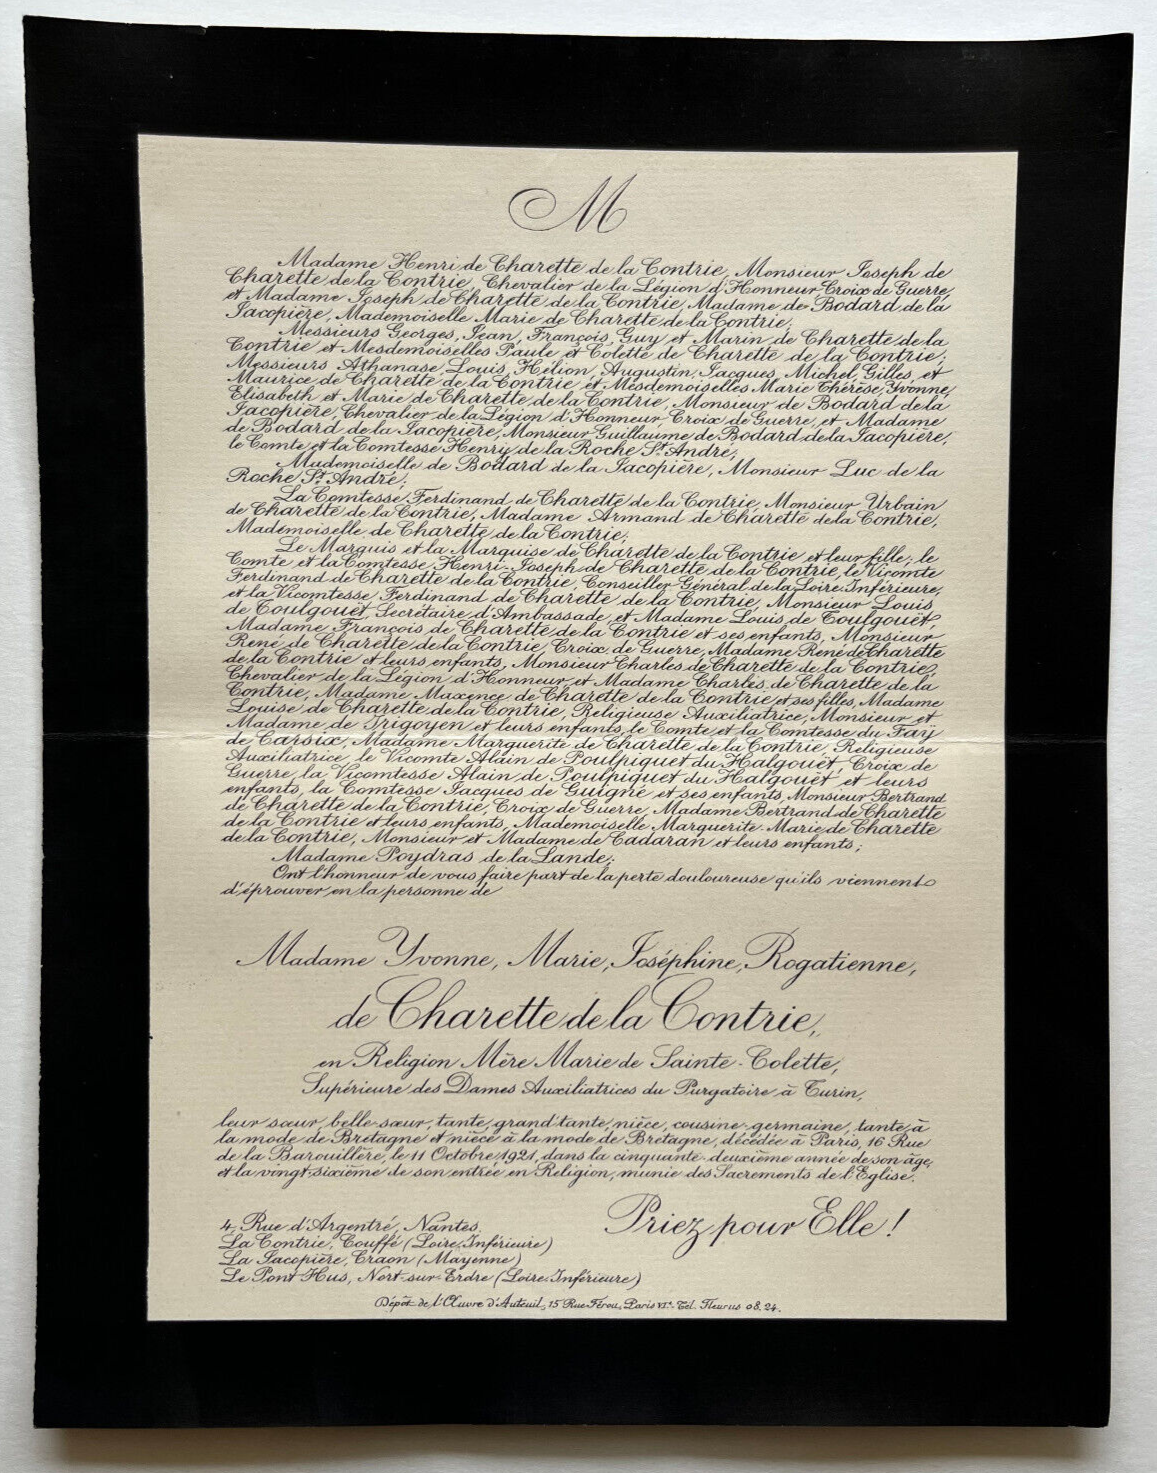 M
Madame Henri de Charette de la Contrie, Monsieur Joseph de
Charette de la Contrie, Chevalier de la Légion d'Honneur Croix de Guerre,
et Madame Joseph de Charette de la Contrie, Madame de Bodard de la
Jacopière, Mademoiselle Marie de Charette de la Contrie;
Messieurs Georges, Jean, François, Guy et Marin de Charette de la
Contrie et Mesdemoiselles Paule et Colette de Charette de la Contrie;
Messieurs Athanase, Louis, Hélion, Augustin, Jacques, Michel, Gilles, et
Maurice de Charette de la Contrie et Mesdemoiselles Marie Thérèse, Yvonne,
Elisabeth et Marie de Charette de la Contrie, Monsieur de Bodard de la
Jacopière, Chevalier de la Légion d'Honneur, Croix de Guerre, et Madame
de Bodard de la Jacopière, Monsieur Guillaume de Bodard de la Jacopière,
le Comte et la Comtesse Henry de la Roche St. André;
Mademoiselle de Bodard de la Jacopière, Monsieur Luc de la
Roche St. André;
La Comtesse Ferdinand de Charette de la Contrie, Monsieur Urbain
de Charette de la Contrie, Madame Armand de Charette de la Contrie,
Mademoiselle de Charette de la Contrie;
Le Marquis et la Marquise de Charette de la Contrie et leur fille, le
Comte et la Comtesse Henri-Joseph de Charette de la Contrie, le Vicomte
Ferdinand de Charette de la Contrie, Conseiller Général de la Loire Inférieure,
et la Vicomtesse Ferdinand de Charette de la Contrie, Monsieur Louis
de Toulgouët, Secrétaire d'Ambassade, et Madame Louis de Toulgouët,
Madame François de Charette de la Contrie et ses enfants, Monsieur
René de Charette de la Contrie, Croix de Guerre, Madame René de Charette
de la Contrie et leurs enfants, Monsieur Charles de Charette de la Contrie,
Chevalier de la Légion d'Honneur et Madame Charles de Charette de la
Contrie, Madame Maxence de Charette de la Contrie et ses filles, Madame
Louise de Charette de la Contrie, Religieuse Auxiliatrice, Monsieur et
Madame de Yrigoyen et leurs enfants, le Comte et la Comtesse du Fay
de Carsix, Madame Marguerite de Charette de la Contrie, Religieuse
Auxiliatrice, le Vicomte Alain de Poulpiquet du Halgouët, Croix de
Guerre, la Vicomtesse Alain de Poulpiquet du Halgouët et leurs
enfants, la Comtesse Jacques de Guigné et ses enfants, Monsieur Bertrand
de Charette de la Contrie, Croix de Guerre, Madame Bertrand de Charette
de la Contrie et leurs enfants, Mademoiselle Marguerite-Marie de Charette
de la Contrie, Monsieur et Madame de Cadaran et leurs enfants;
Madame Poydras de la Lande;
Ont l'honneur de vous faire part de la perte douloureuse qu'ils viennent
d'éprouver en la personne de
Madame Yvonne, Marie, Joséphine, Rogatienne,
de Charette de la Contrie,
en Religion Mère Marie de Sainte-Colette,
Supérieure des Dames Auxiliatrices du Purgatoire à Turin,
leur sœur, belle-sœur, tante, grand'tante, nièce, cousine-germaine, tante à
la mode de Bretagne et nièce à la mode de Bretagne, décédée à Paris, 16 Rue
de la Barouillère, le 11 Octobre 1921, dans la cinquante-deuxième année de son âge,
et la vingt-sixième de son entrée en Religion, munie des Sacrements de l'Eglise.
Priez pour Elle!
4, Rue d'Argentré, Nantes.
La Contrie, Couffé (Loire-Inférieure)
La Jacopière, Craon (Mayenne)
Le Pont Hus, Nort-sur-Erdre (Loire-Inférieure)
Dépôt de l'Œuvre d'Auteuil, 15 Rue Férou, Paris VIe. Tél. Fleurus 08.24.